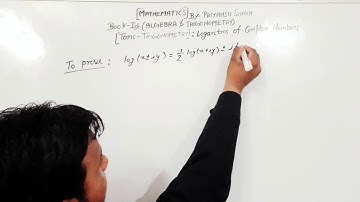 [MATHEMATICS] By- PRIYANSH SINGH
Book-Ist (ALGEBRA & TRIGONOMETRY)
[TOPIC-TRIGONOMETRY]: Logarithms of Complex Numbers
To prove: log(x±iy) = 1/2 log(x+y) ± i